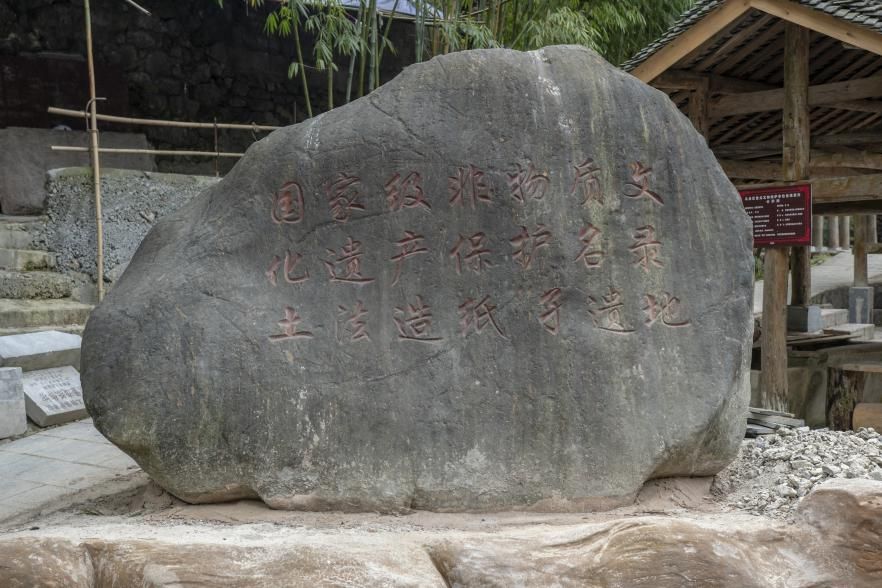 国家级非物质文
化遗产保护名录
土法造纸孑遗地